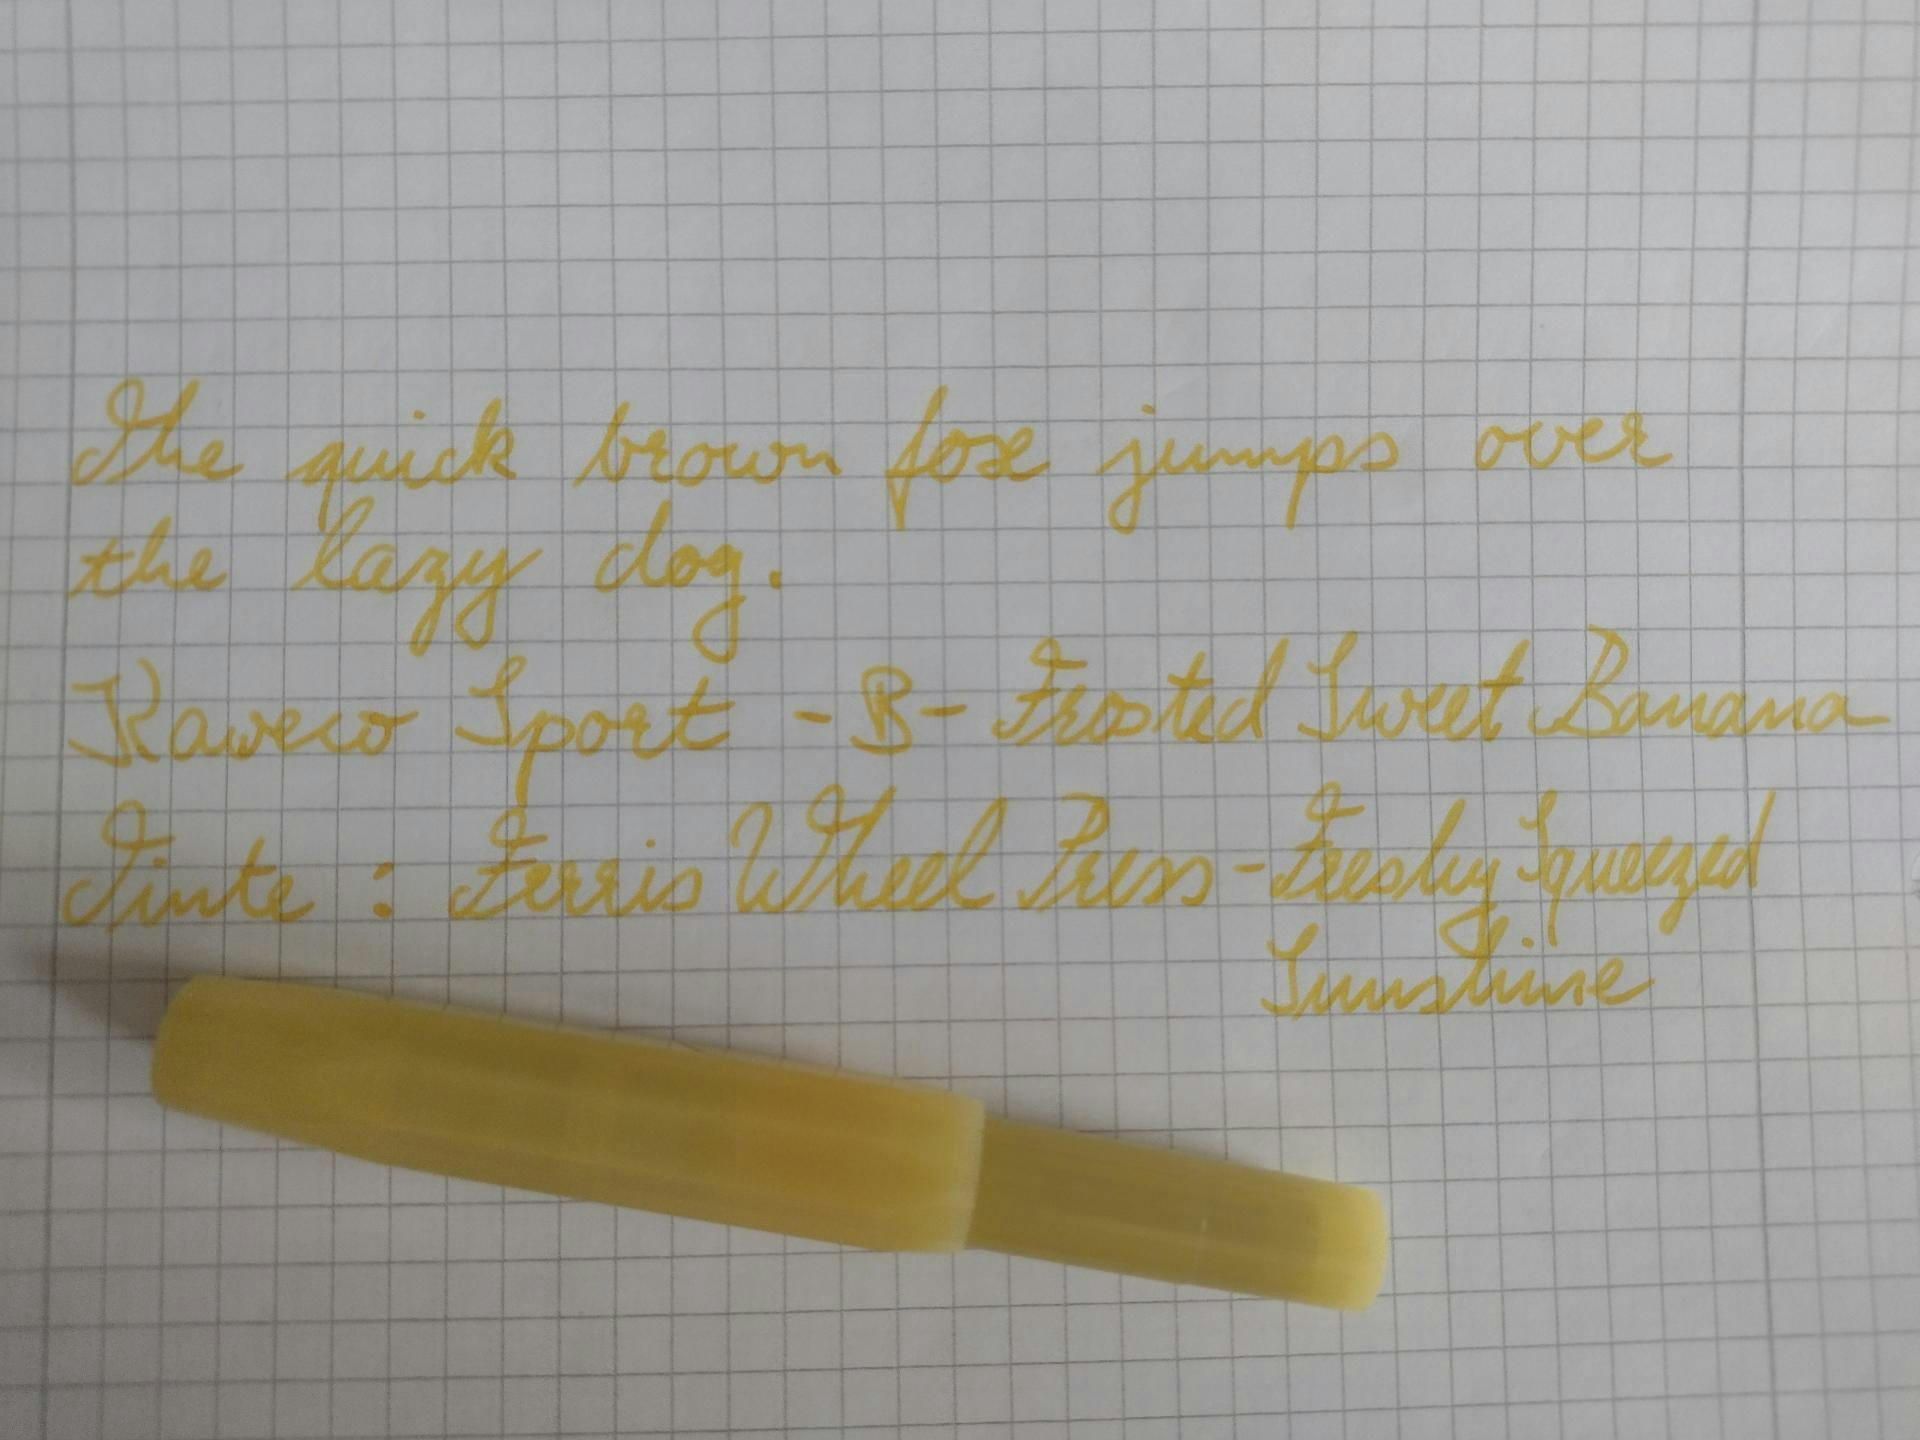 The quick brown fox jumps over
the lazy dog.
Kaweco Sport - B - Frosted Sweet Banana
Tinte : Ferris Wheel Press - Freshly Squeezed
Sunshine